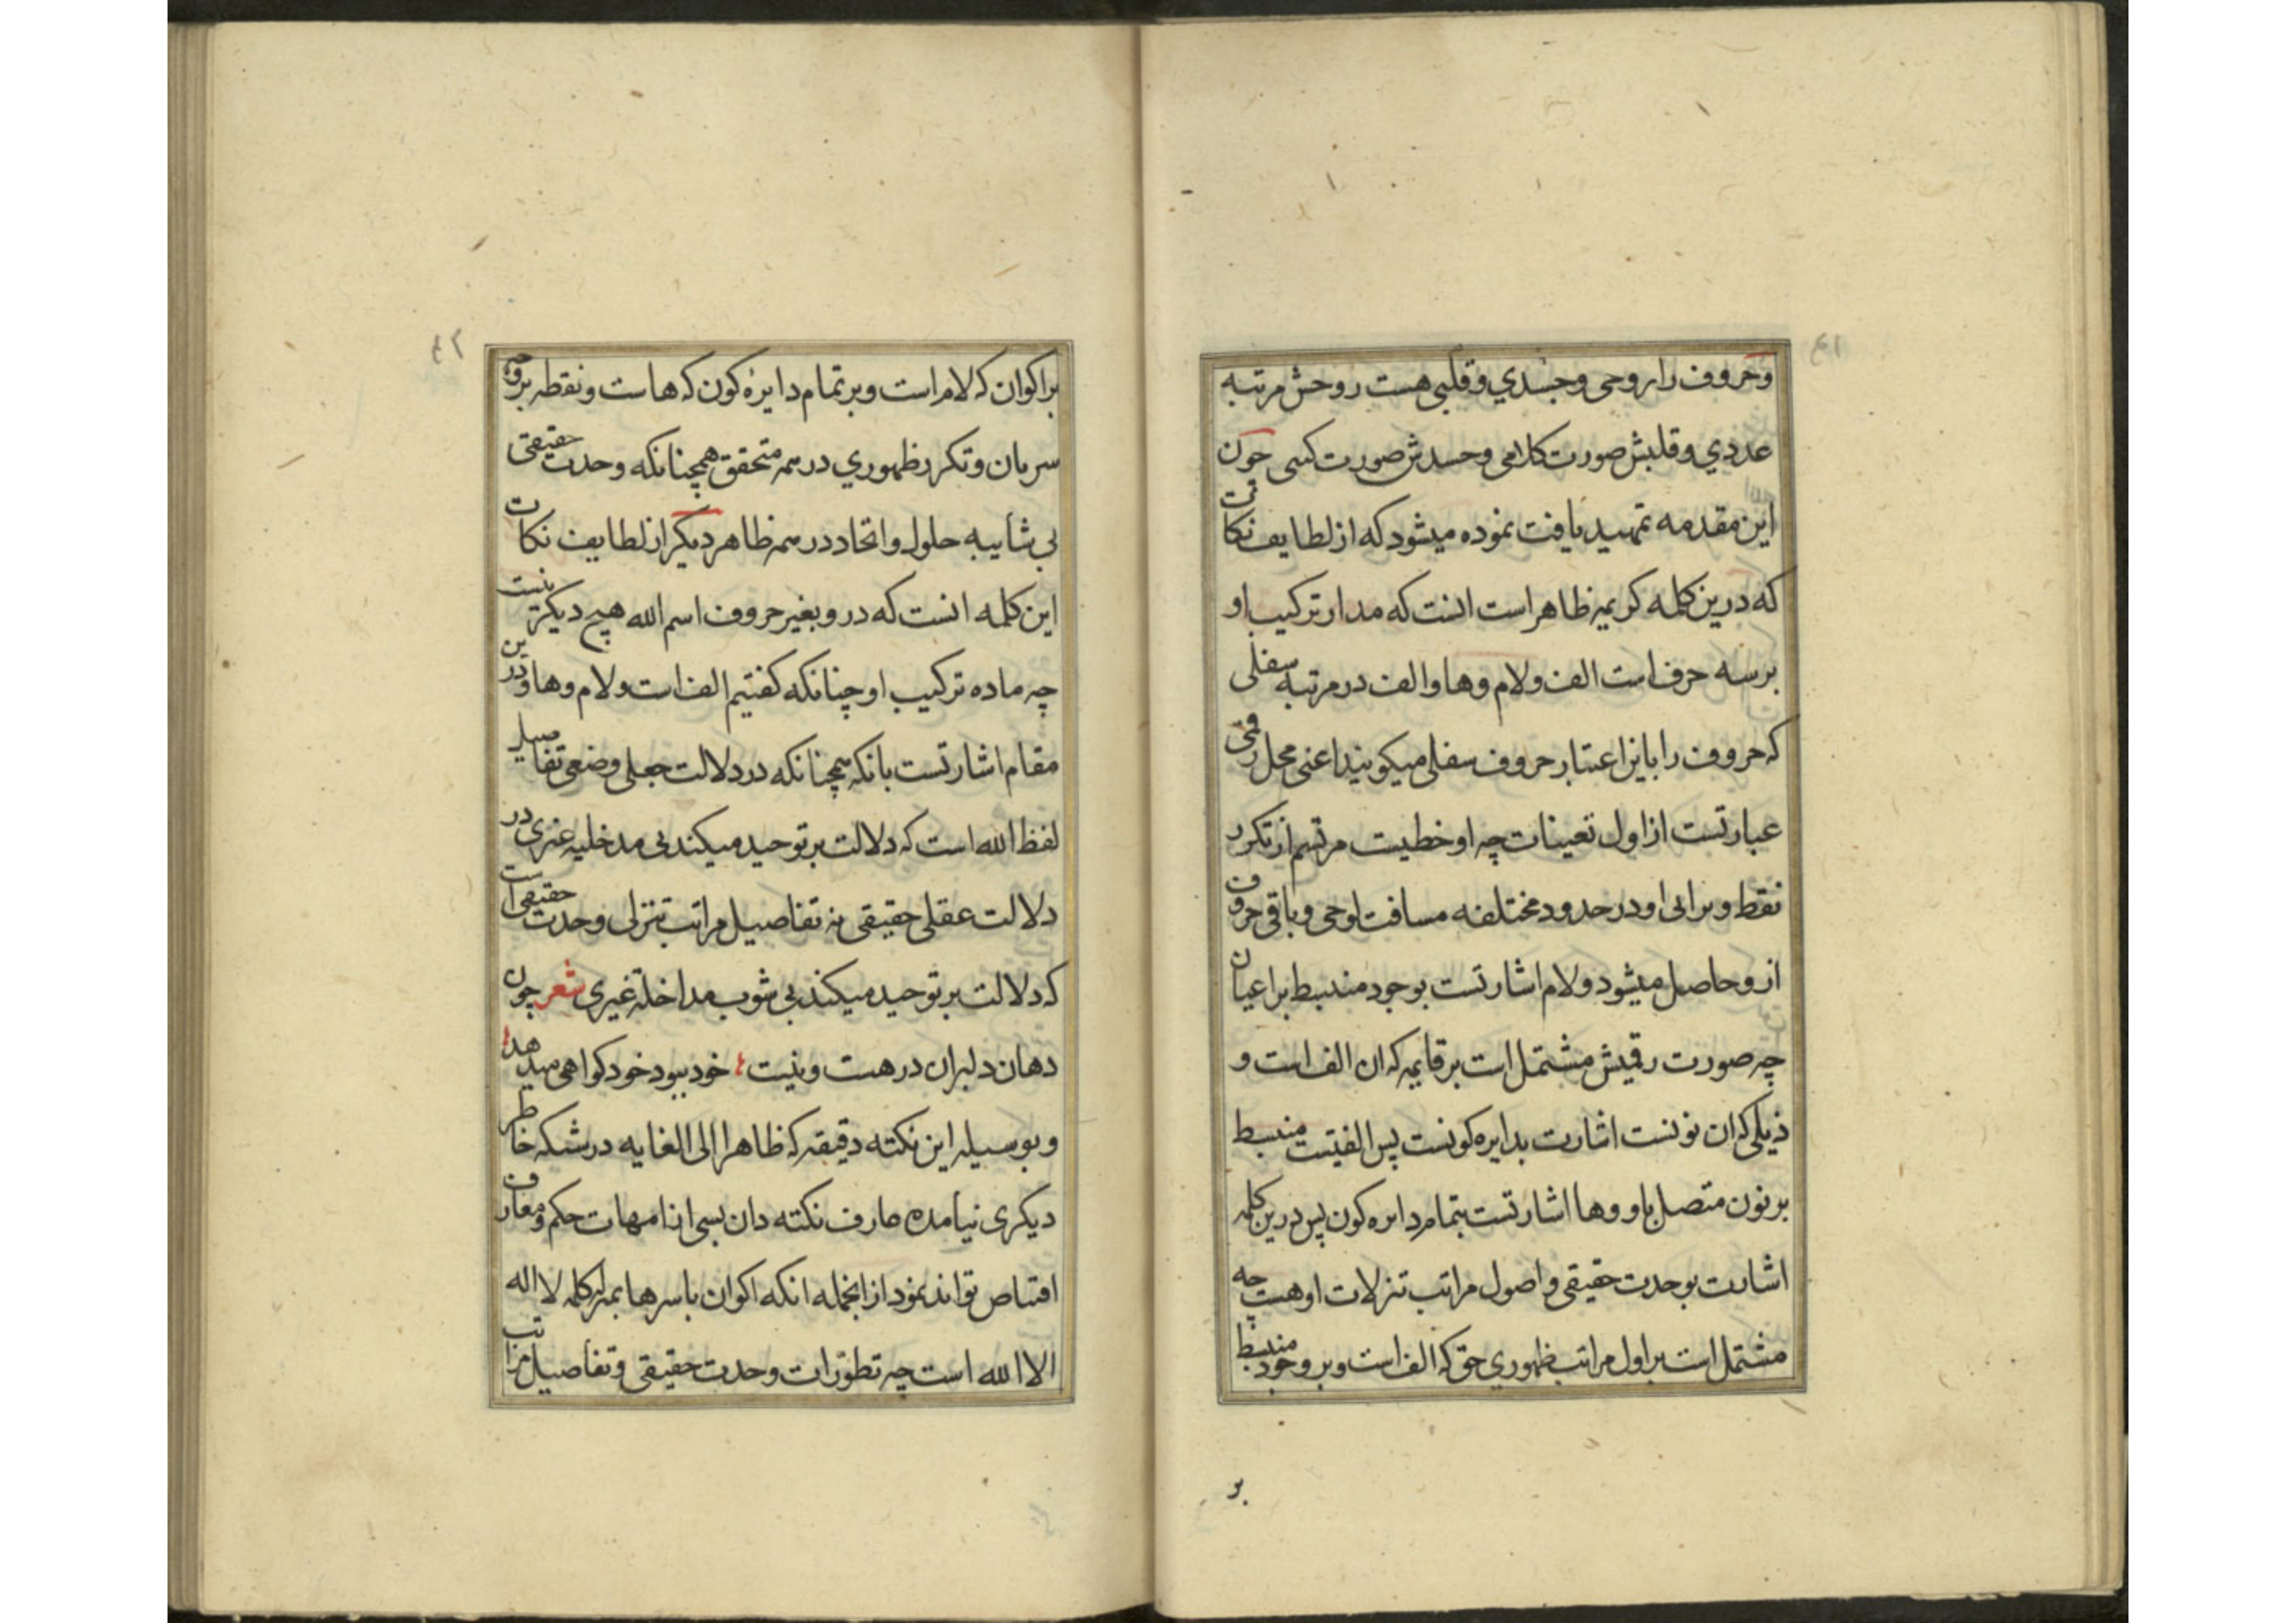 ٤١
وحروف را روحی وجسدي وقلبی هست روحش مرتبه
عددي وقلبش صورت کلامی وجسدش صورت کتبی چون
این مقدمه تمهید یافت نموده میشود که از لطایف نکات
که درین کلمه کریمه ظاهر است انست که مدار ترکیب او
بر سه حرف است الف ولام وها والف در مرتبه سفلی
که حروف را باین اعتبار حروف سفلی میکویند اعنی محل رقمی
عبارتست از اول تعینات چه او خطیست مرتسم از تکرر
نقطه وبرایی او در حدود مختلفه مسافت لوحی وباقی حروف
ازو حاصل میشود ولام اشارتست بوجود منبسط بر اعیان
چه صورت رقمیش مشتمل است بر قایمه که ان الف است و
ذیلی که ان نونست اشارت بدایره کونست پس الفیت منبسط
بر نون متصل باو وها اشارتست بتمام دایره کون پس درین کلمه
اشارت بوحدت حقیقی واصول مراتب تنزلات او هست چه
مشتمل است بر اول مراتب ظهوري حق که الف است وبر وجود منبسط
بر
٤٢
بر اکوان که لام است وبر تمام دایره کون که هاست ونقطه بر وجه
سریان وتکرر ظهوري در همه متحقق همچنانکه وحدت حقیقی
بی شایبه حلول واتحاد در همه ظاهر دیکر از لطایف نکات
این کلمه انست که درو بغیر حروف اسم الله هیچ دیکر نیست
چه ماده ترکیب او چنانکه کفتیم الف است ولام وها ودرین
مقام اشارتست بانکه همچنانکه در دلالت جعلی وضعی تفاصیل
لفظ الله است که دلالت بر توحید میکند بی مدخلیه غیری در
دلالت عقلی حقیقی نه تفاصیل مراتب تنزلی وحدت حقیقی است
که دلالت بر توحید میکند بی شوب مداخله غیری شعر چون
دهان دلبران در هست ونیست خود ببود خود کواهی میدهد
وبوسیله این نکته دقیقه که ظاهرا الی الغایه در شبکه خاطر
دیکری نیامده عارف نکته دان بسی از امهات حکم ومعارف
اقتناص تواند نمود از انجمله انکه اکوان باسرها بمنزله کلمه لا اله
الا الله است چه تطورات وحدت حقیقی وتفاصیل مراتب